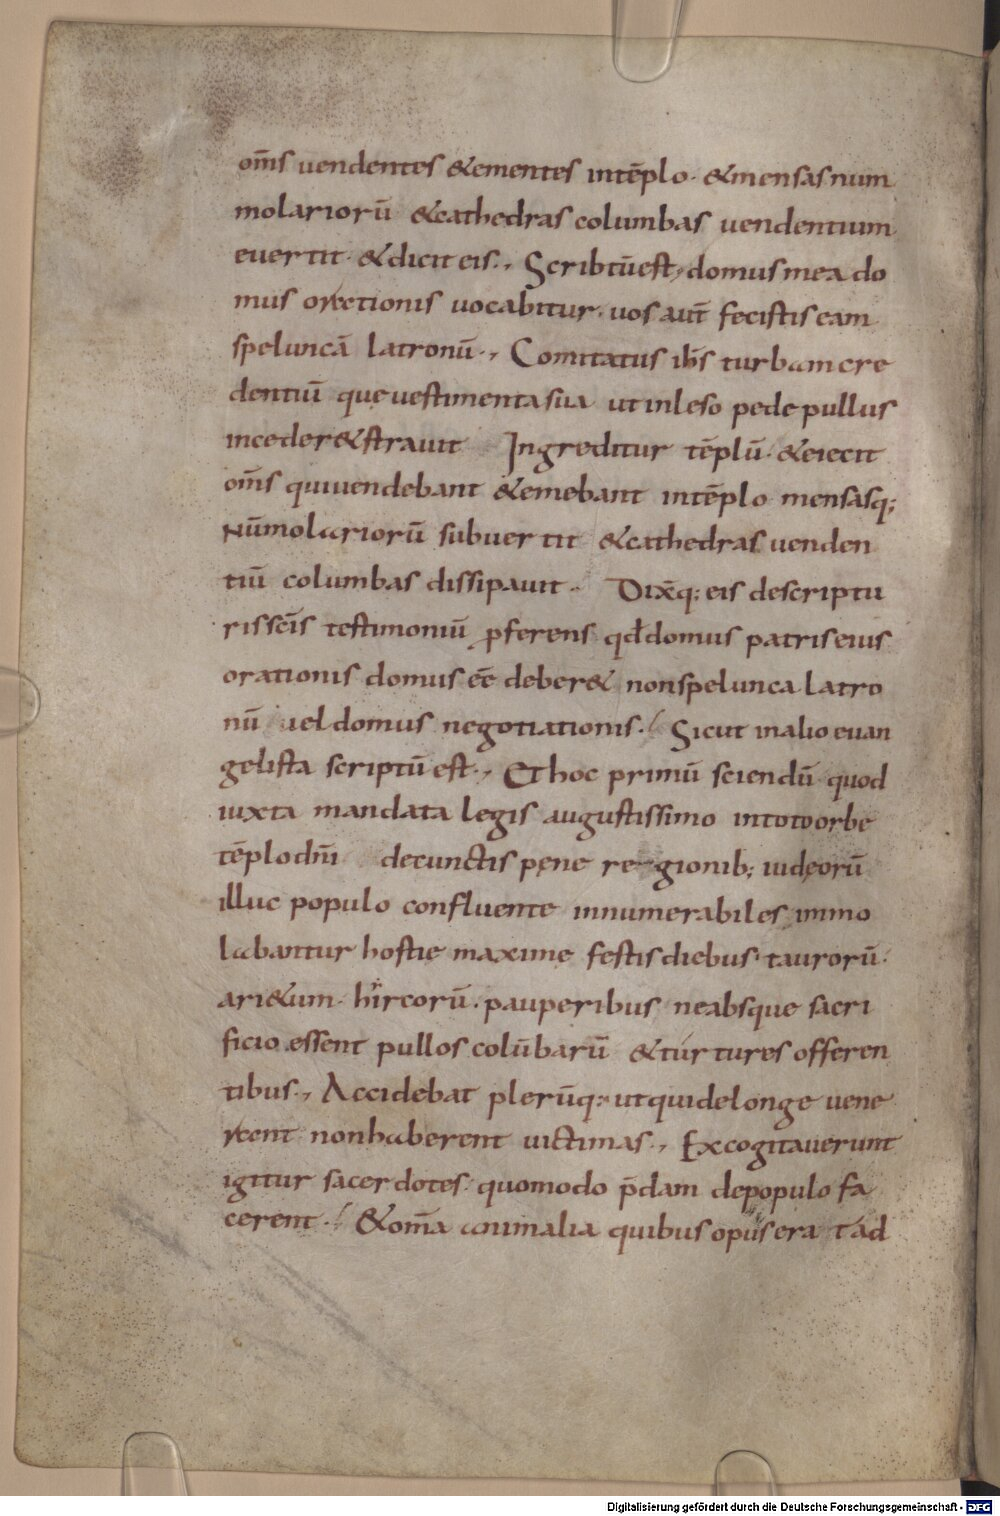 om̄s uendentes &ementes intēplo · &mensas num
molariorū &cathedras columbas uendentium
euertit · &dicit eis ·, Scribtūest, domus mea do
mus orationis uocabitur · uos aut̄ fecistis eam
speluncā latronū ·, Comitatus ih̄s turbam cre
dentiū quę uestimenta sua ut inleso pede pullus
inceder& strauit Ingreditur tēplū · &eiecit
om̄s qui uendebant &emebant intēplo mensasq;
Nūmolariorū subuertit &cathedras uenden
tiū columbas dissipauit · Dix̄q; eis descriptu
ris sc̄is testimoniū p̱ferens qd̄ domus patris eius
orationis domus ēe deber& non spelunca latro
nū uel domus negotiationis · Sicut in alio euan
gelista scriptū est ·, Et hoc primū sciendū quod
iuxta mandata legis augustissimo intoto orbe
tēplo dn̄i decunctis pęne regionib; iudęorū
illuc populo confluente innumerabiles immo
labantur hostie maxime festis diebus · taurorū ·
ari&um · hircorū · pauperibus ne absque sacri
ficio essent pullos colūbarū &turtures offeren
tibus ·, Accidebat plerūq; ut qui de longe uene
rant non haberent uictimas ·, Excogitauerunt
igitur sacerdotes quomodo p̄dam depopulo fa
cerent · &om̄a animalia quibus opus erat ad
Digitalisierung gefördert durch die Deutsche Forschungsgemeinschaft - DFG